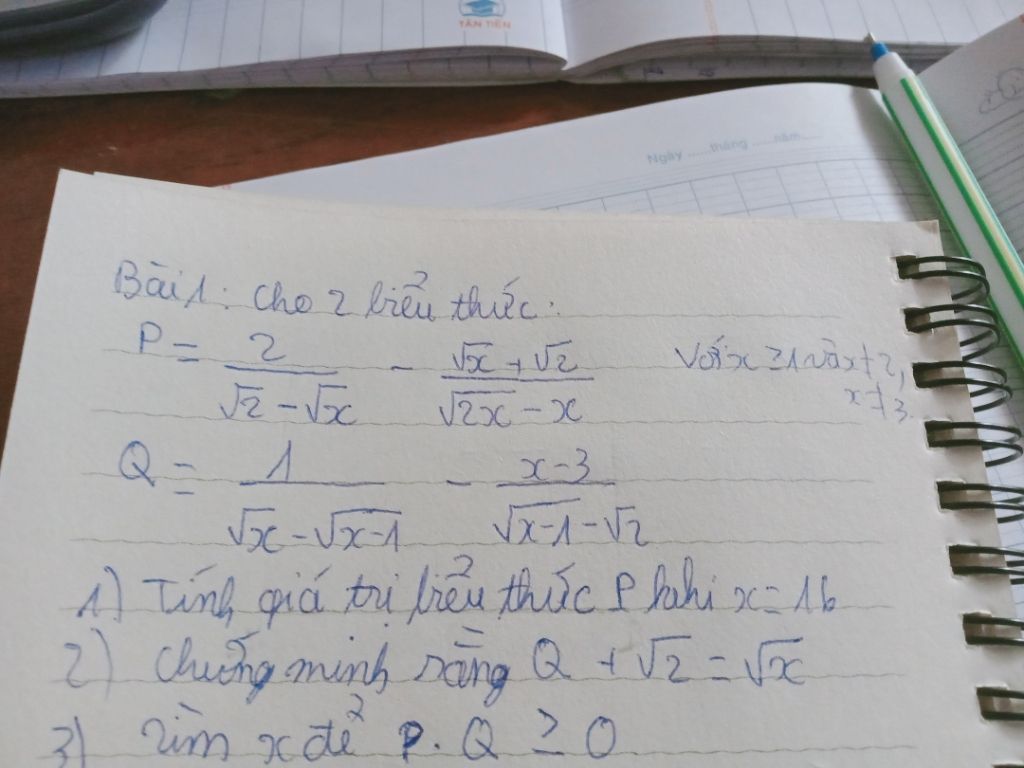 TÂN TIẾN
Ngày ......tháng ......năm......
Bài 1: Cho 2 biểu thức:
P = 2/(√2 - √x) - (√x + √2)/(√2x - x) với x ≥ 1 và x ≠ 2, x ≠ 3.
Q = 1/(√x - √(x-1)) - (x-3)/(√(x-1) - √2)
1) Tính giá trị biểu thức P khi x = 16
2) Chứng minh rằng Q + √2 = √x
3) Tìm x để P. Q ≥ 0